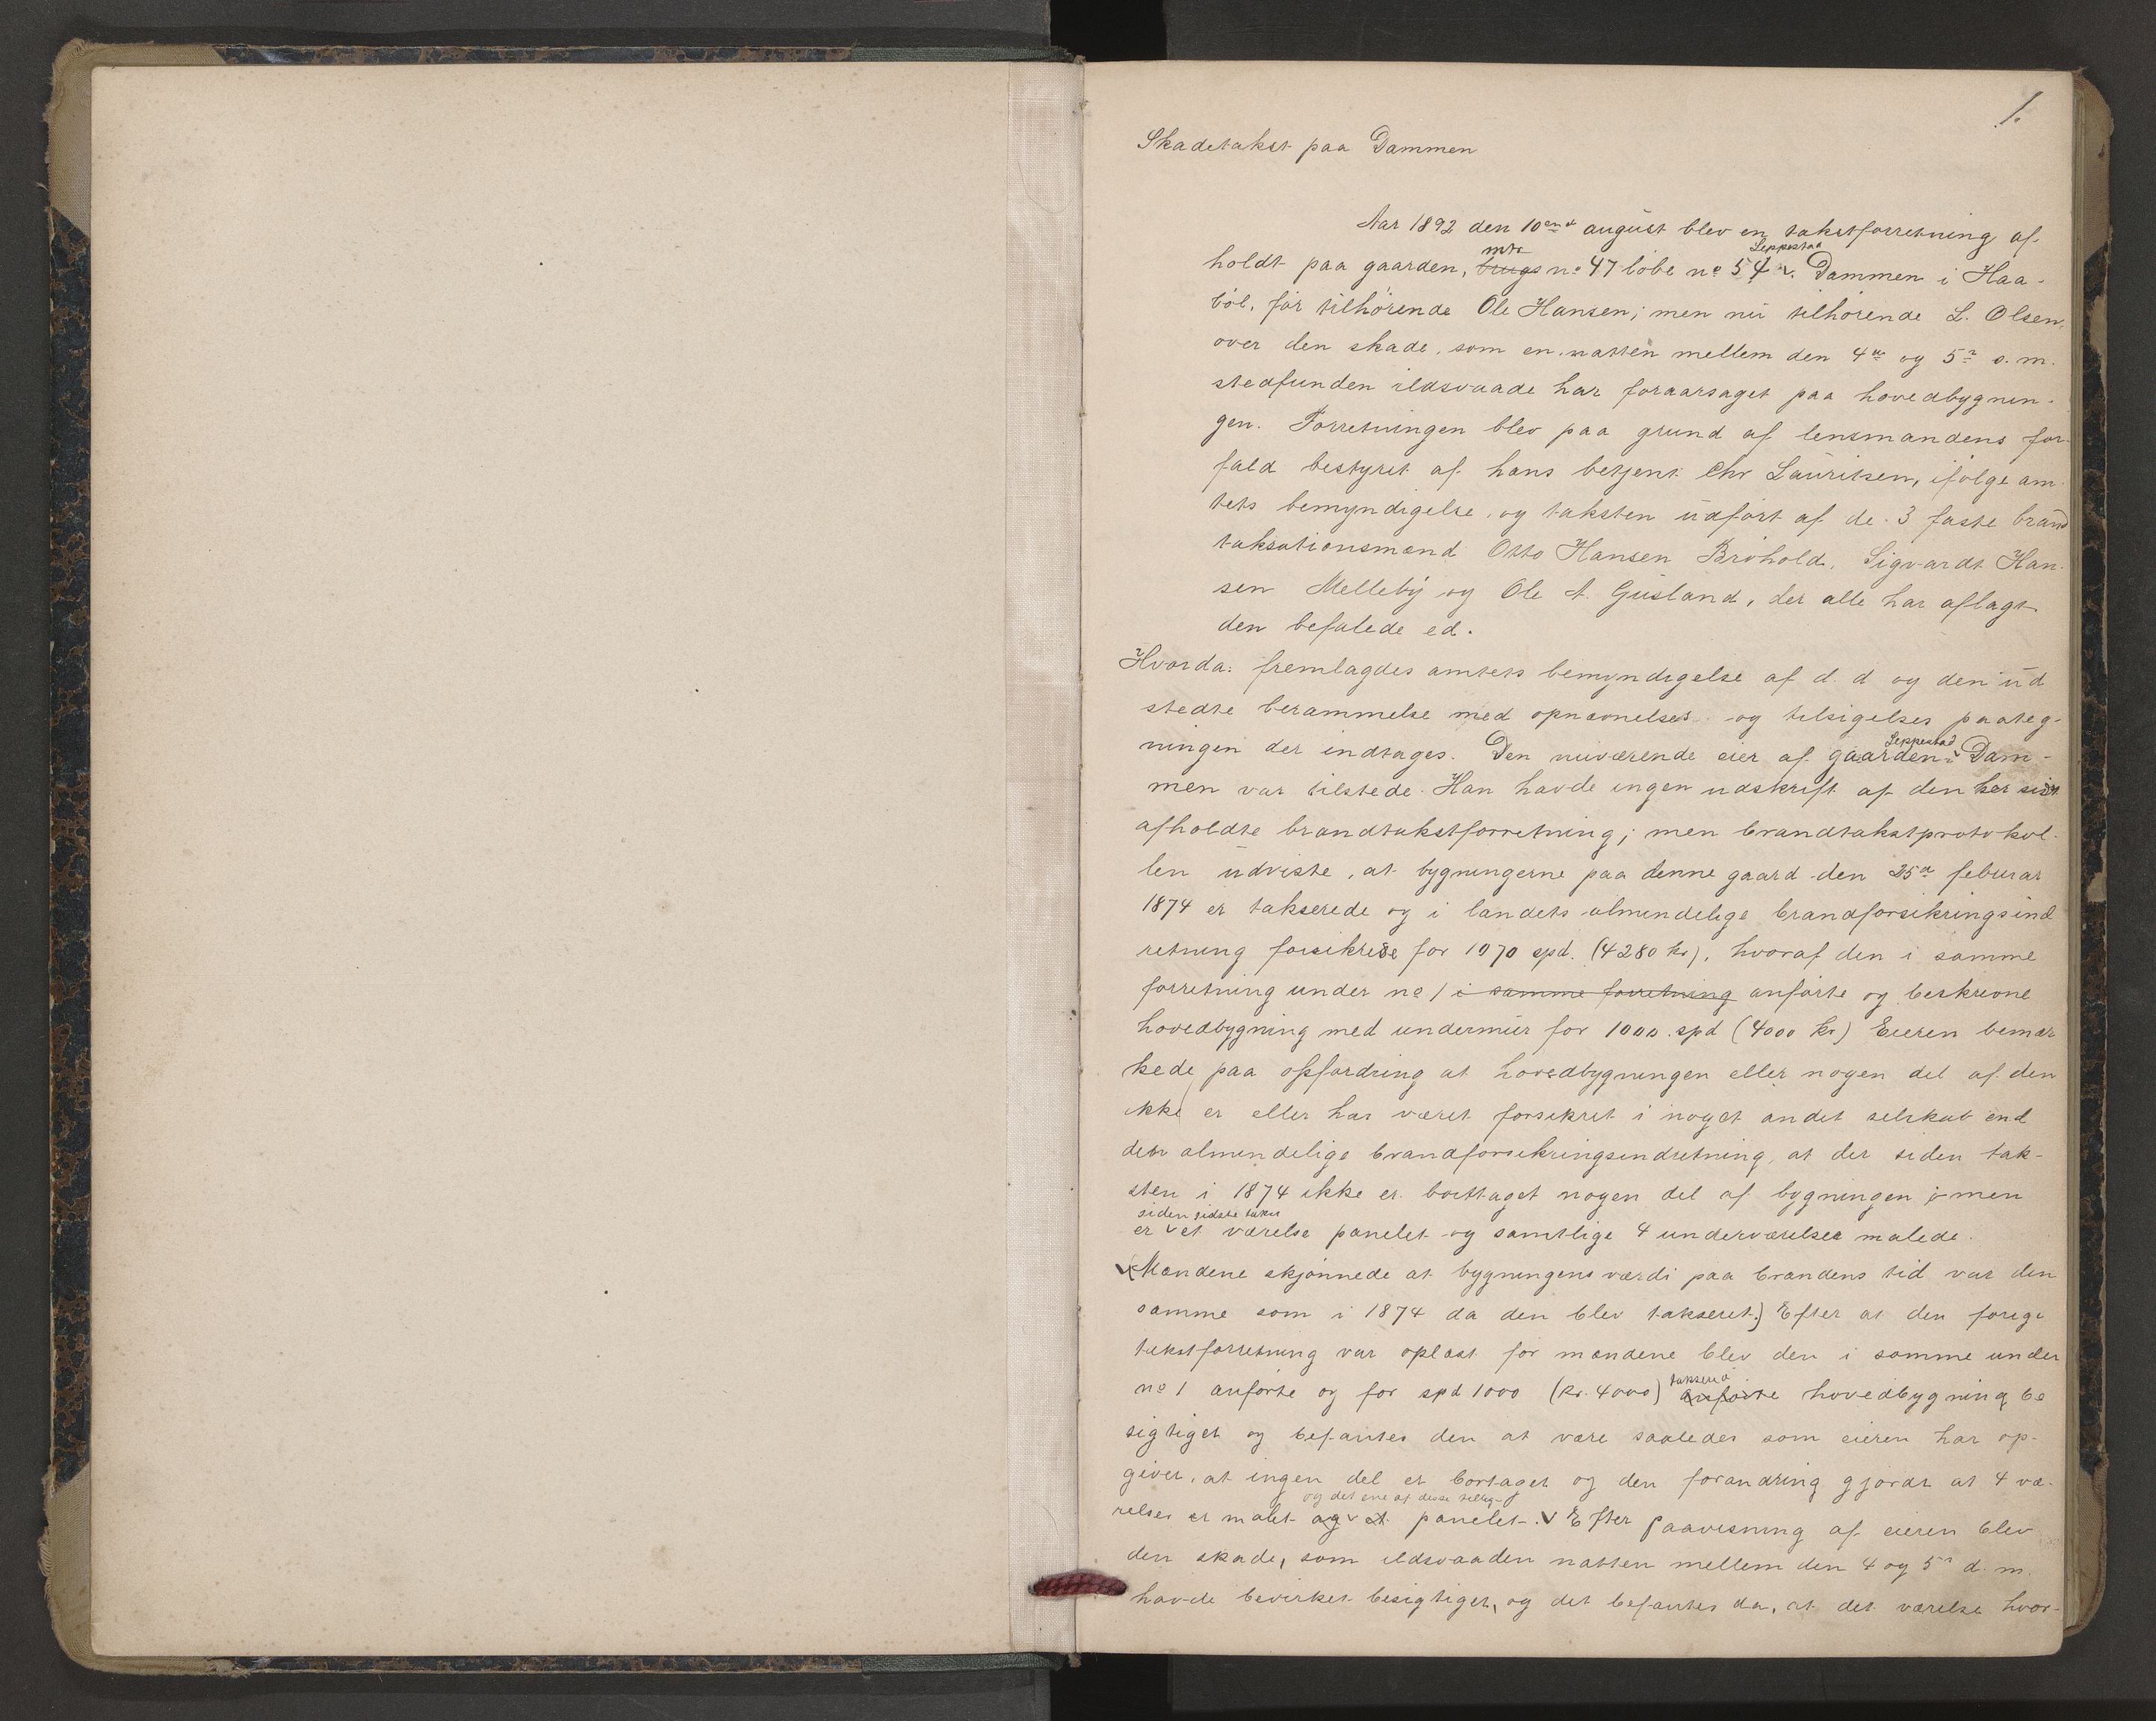 1.
Skadetakst paa Dammen
Aar 1892 den 10end august blev en takstforretning af-
holdt paa gaarden, brugs mtr no 47 løbe no 54 Leppestad v. Dammen i Haa-
bøl, før tilhørende Ole Hansen; men nu tilhørende L. Olsen,
over den skade, som en natten mellem den 4de og 5te d. m.
stedfunden ildsvaade har foraarsaget paa hovedbygnin-
gen. Forretningen blev paa grund af lensmandens for-
fald bestyret af hans betjent Chr Lauritsen, ifølge am-
tets bemyndigelse, og taksten udført af de 3 faste brand
taksationsmænd Otto Hansen Brohold, Sigvardt Han-
sen Melleby og Ole A. Gusland, der alle har aflagt
den befalede ed.
Hvorda: fremlagdes amtets bemyndigelse af d. d og den ud
stedte berammelse med opnævnelses og tilsigelses paateg-
ningen der indtages. Den nuværende eier af gaarden Leppestad v Dam-
men var tilstede. Han havde ingen udskrift af den her sidst
afholdte brandtakstforretning; men brandtakstprotokol-
len udviste, at bygningerne paa denne gaard den 25de feburar
1874 er takserede og i landets almindelige brandforsikringsind
retning forsikrede for 1070 spd. (4280 kr), hvoraf den i samme
forretning under no 1 i samme forretning anførte og beskrevne
hovedbygning med undermur for 1000 spd (4000 kr) Eieren bemær
kede paa opfordring at hovedbygningen eller nogen del af den
ikke er eller har været forsikret i noget andet selskab end
den almindelige brandforsikringsindretning, at der siden tak-
sten i 1874 ikke er borttaget nogen del af bygningen; men
er siden sidste takst v et værelse panelet og samtlige 4 underværelser malede.
Mændene skjønnede at bygningens værdi paa brandens tid var den
samme som i 1874 da den blev takseret.) Efter at den forige
takstforretning var oplæst for mændene blev den i samme under
no 1 anførte og for spd 1000 (kr. 4000) anførte takserede hovedbygning be
sigtiget og befantes den at være saaledes som eieren har op-
givet, at ingen del er bortaget og den forandring gjordt at 4 væ-
relser er malet og v et og det ene af disse panelet. v Efter paavisning af eieren blev
den skade, som ildsvaaden natten mellem den 4 og 5te d. m.
havde bevirket besigtiget, og det befantes da, at det værelse hvor-